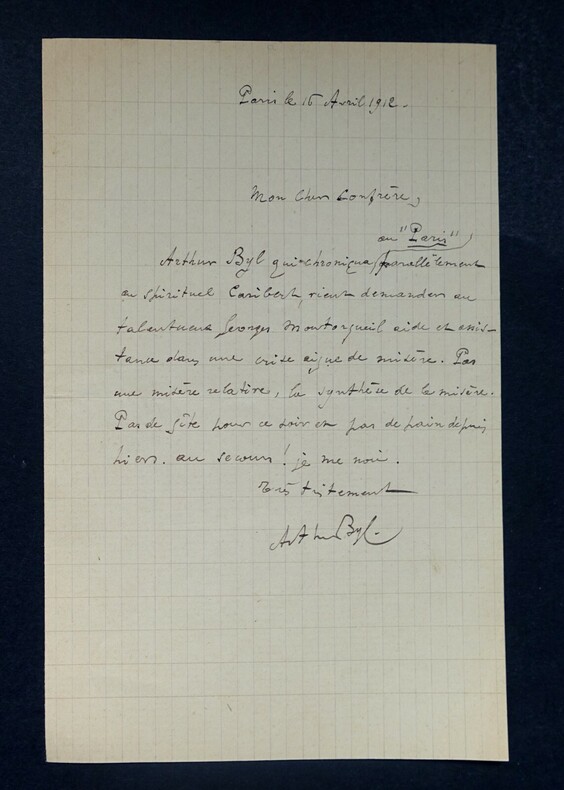 Paris le 16 Avril 1912.
Mon Cher Confrère,
au "Paris"
Arthur Byl qui chroniqua parallèlement
au spirituel Caribert, vient demander au
talentueux Georges Montorgueil aide et assis-
tance dans une crise aigue de misère. Pas
une misère relative, la synthèse de la misère.
Pas de gîte pour ce soir et pas de pain depuis
hier. au secours! je me noie.
Très tristement
Arthur Byl